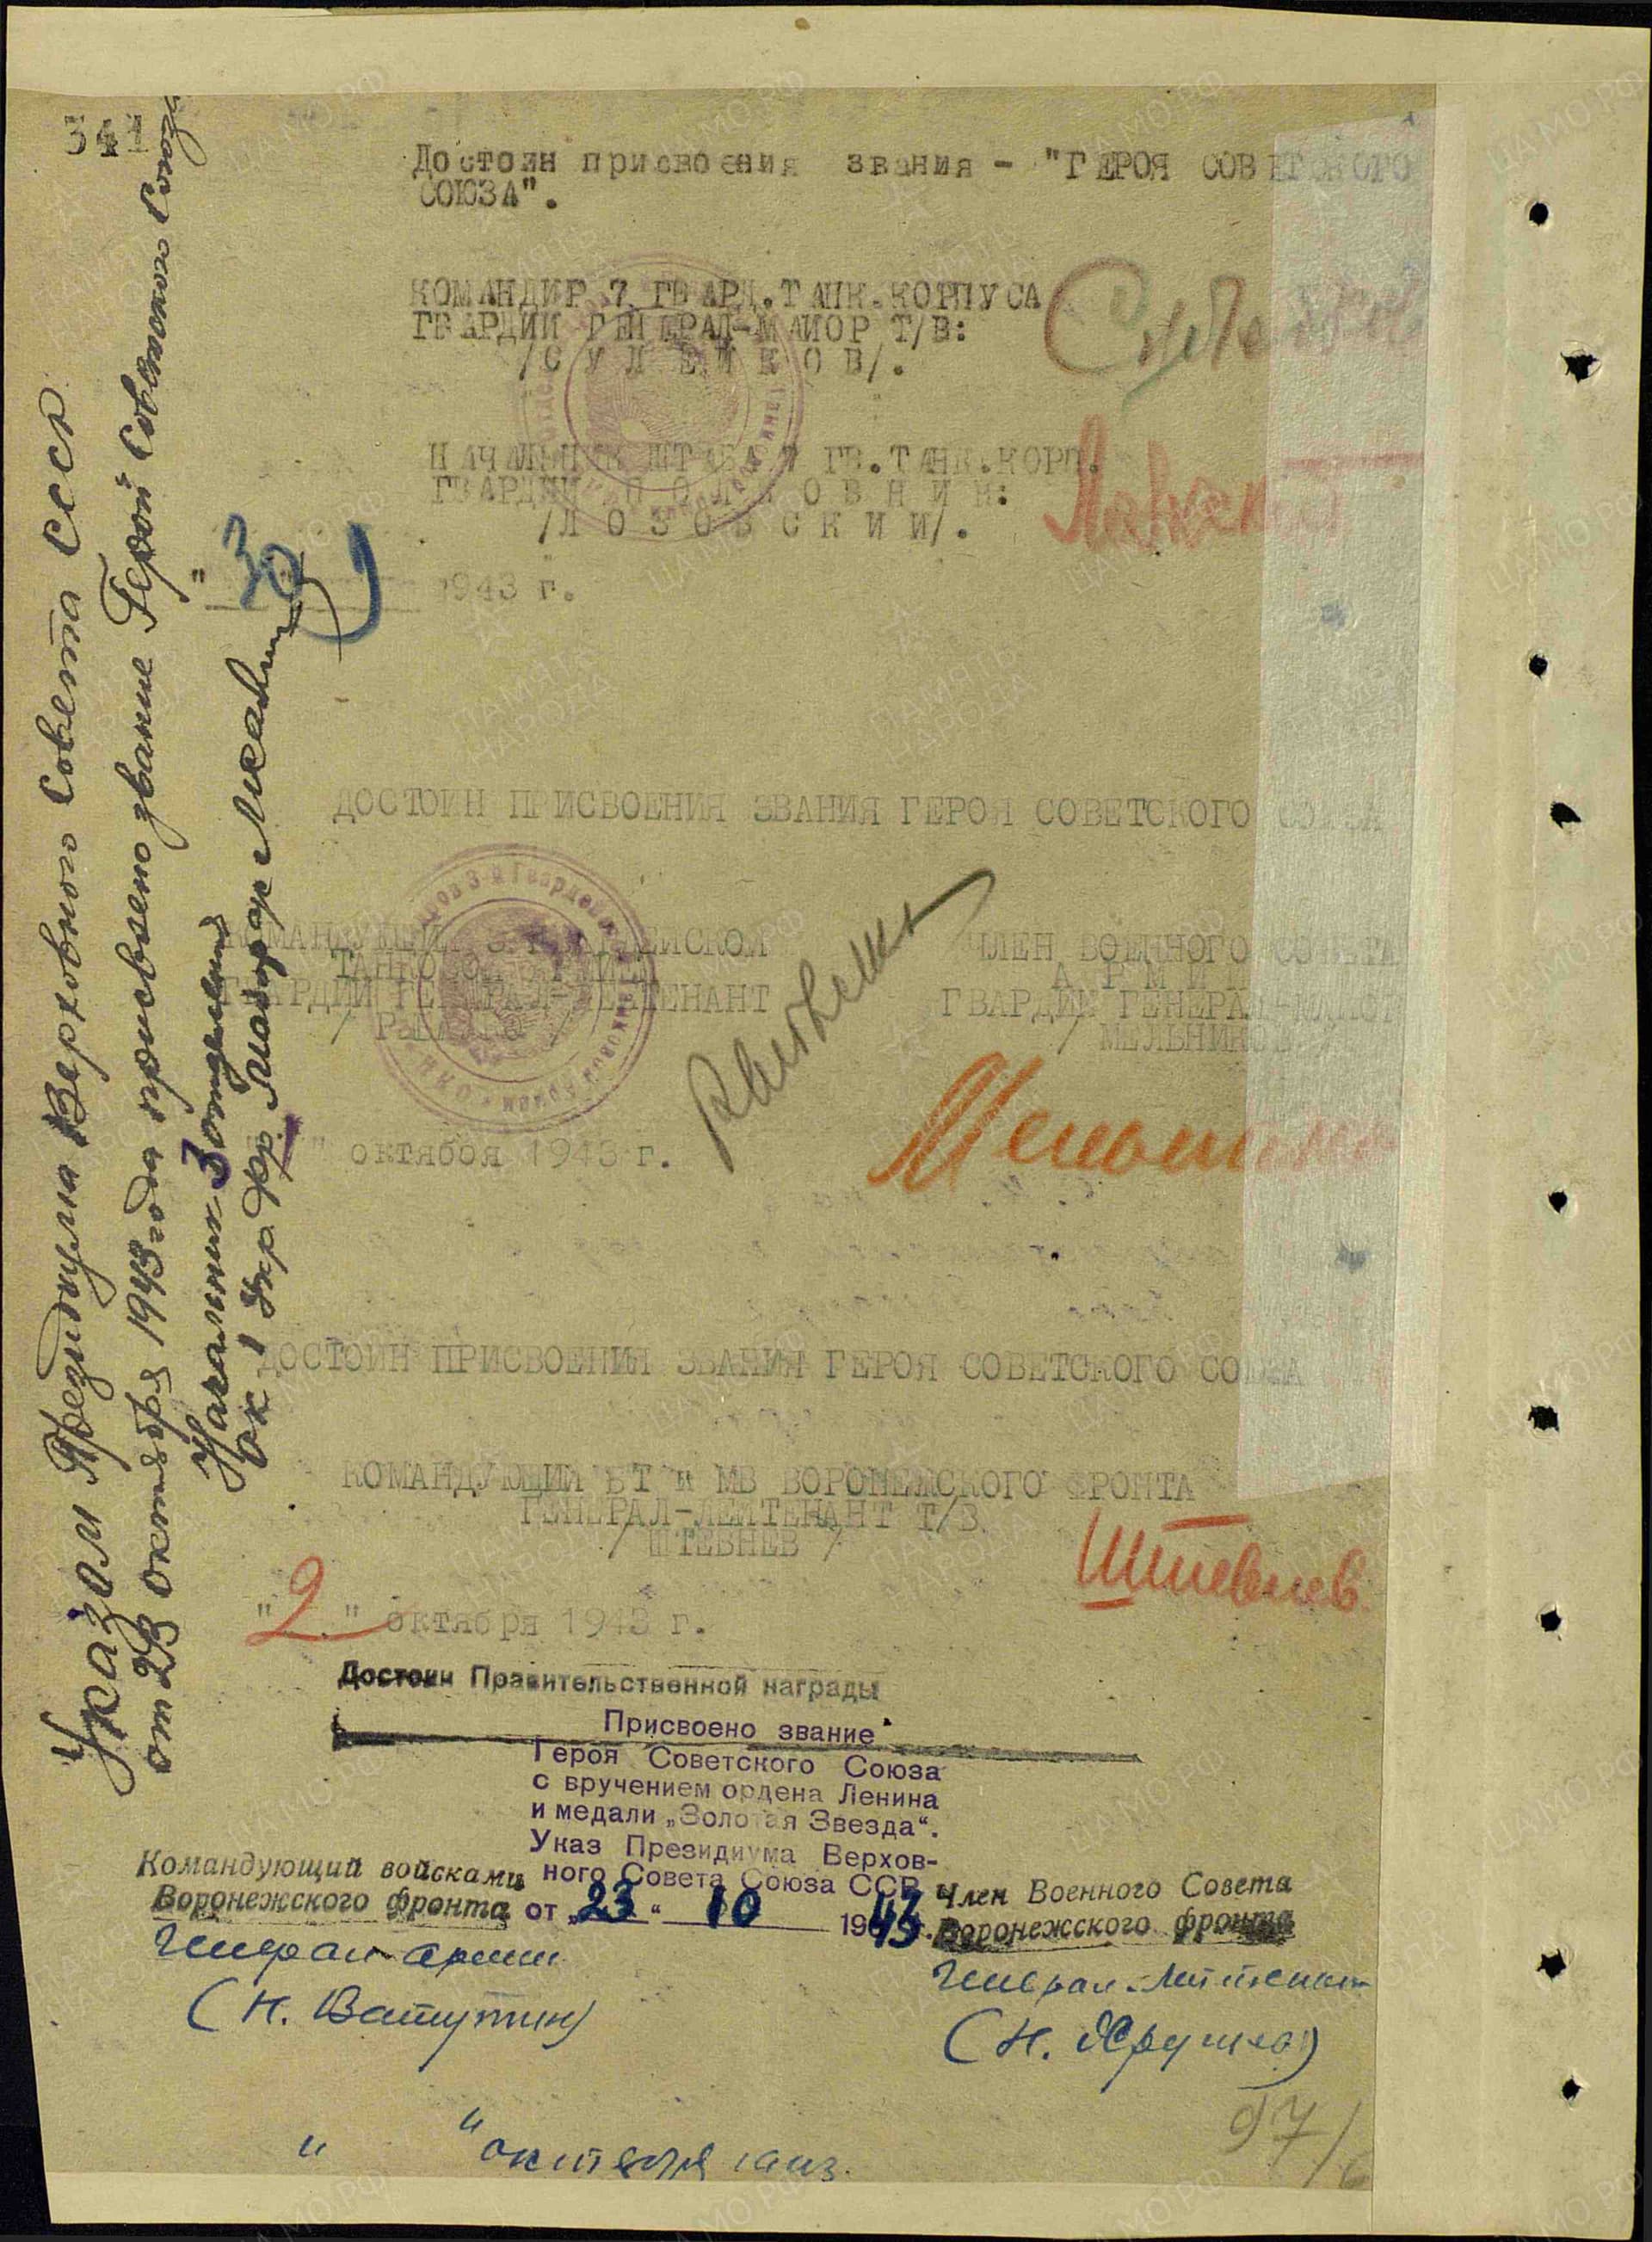 341
Достоин присвоения звания - "ГЕРОЯ СОВЕТСКОГО
СОЮЗА".
КОМАНДИР 7 ГВАРД.ТАНК.КОРПУСА
ГВАРДИИ ГЕНЕРАЛ-МАЙОР Т/В:
/С У Л Е Й К О В/.
НАЧАЛЬНИК ШТАБА 7 ГВ.ТАНК.КОРП.
ГВАРДИИ П О Л К О В Н И К:
/Л О З О В С К И Й/.
"30" 9 1943 г.
ДОСТОИН ПРИСВОЕНИЯ ЗВАНИЯ ГЕРОЯ СОВЕТСКОГО СОЮЗА
КОМАНДУЮЩИЙ 3 ГВАРДЕЙСКОЙ
ТАНКОВОЙ АРМИЕЙ
ГВАРДИИ ГЕНЕРАЛ-ЛЕЙТЕНАНТ
/ РЫБАЛКО /
ЧЛЕН ВОЕННОГО СОВЕТА
А Р М И И
ГВАРДИИ ГЕНЕРАЛ-МАЙОР
/ МЕЛЬНИКОВ /
" октября 1943 г.
ДОСТОИН ПРИСВОЕНИЯ ЗВАНИЯ ГЕРОЯ СОВЕТСКОГО СОЮЗА
КОМАНДУЮЩИЙ БТ и МВ ВОРОНЕЖСКОГО ФРОНТА
ГЕНЕРАЛ-ЛЕЙТЕНАНТ Т/В
/ ШТЕВНЕВ /
Штевнев
"2" октября 1943 г.
Достоин Правительственной награды
Присвоено звание
Героя Советского Союза
с вручением ордена Ленина
и медали „Золотая Звезда".
Указ Президиума Верхов-
ного Совета Союза ССР
от „23" 10 1943 г.
Командующий войсками
Воронежского фронта
Генерал армии
(Н. Ватутин)
Член Военного Совета
Воронежского фронта
Генерал-лейтенант
(Н. Хрущев)
" " октября 1943.
97/
Указом Президиума Верховного Совета СССР
от 23 октября 1943 года присвоено звание Герой Советского Союза
Начальник 3 отделения
ОК 1 Укр. фр. Майор